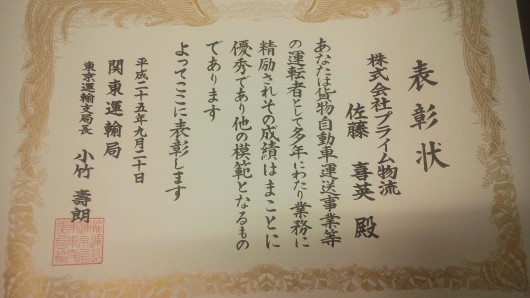 表彰状
株式会社プライム物流
佐藤 喜英 殿
あなたは貨物自動車運送事業等
の運転者として多年にわたり業務に
精励されその成績はまことに
優秀であり他の模範となるもの
であります
よってここに表彰します
平成二十五年九月二十日
関東運輸局
東京運輸支局長 小竹 壽朗